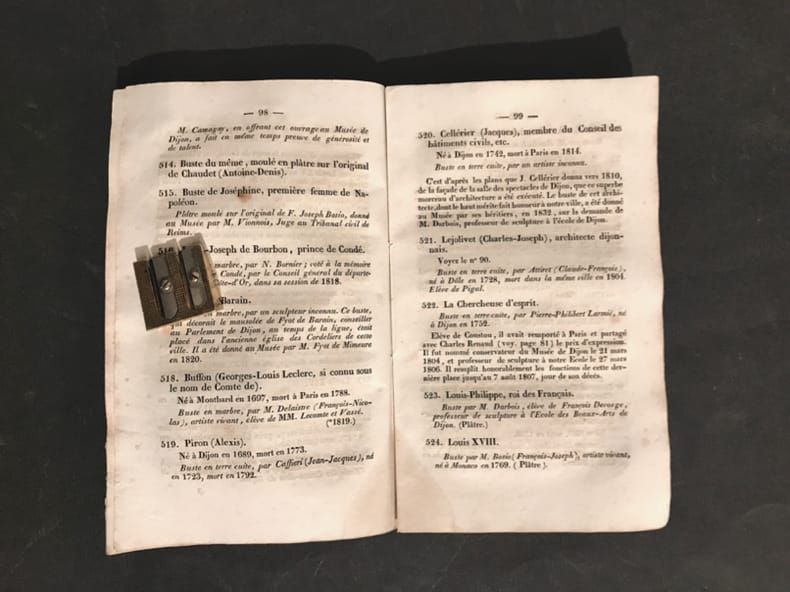 — 98 —
M. Camagny, en offrant cet ouvrage au Musée de
Dijon, a fait en même temps preuve de générosité et
de talent.
514. Buste du même, moulé en plâtre sur l'original
de Chaudet (Antoine-Denis).
515. Buste de Joséphine, première femme de Na-
poléon.
Plâtre moulé sur l'original de F. Joseph Bosio, donné
au Musée par M. Vionnois, Juge au Tribunal civil de
Reims.
Joseph de Bourbon, prince de Condé.
marbre, par N. Bornier; voté à la mémoire
Condé, par le Conseil général du départe-
d'Or, dans sa session de 1818.
Barain.
en marbre, par un sculpteur inconnu. Ce buste,
qui décorait le mausolée de Fyot de Barain, conseiller
au Parlement de Dijon, au temps de la ligue, était
placé dans l'ancienne église des Cordeliers de cette
ville. Il a été donné au Musée par M. Fyot de Mimeure
en 1820.
518. Buffon (Georges-Louis Leclerc, si connu sous
le nom de Comte de).
Né à Montbard en 1607, mort à Paris en 1788.
Buste en marbre, par M. Delaistre (François-Nico-
las), artiste vivant, élève de MM. Lecomte et Vassé.
(*1819.)
519. Piron (Alexis).
Né à Dijon en 1689, mort en 1773.
Buste en terre cuite, par Caffieri (Jean-Jacques), né
en 1723, mort en 1792.
— 99 —
520. Cellérier (Jacques), membre du Conseil des
bâtiments civils, etc.
Né à Dijon en 1742, mort à Paris en 1814.
Buste en terre cuite, par un artiste inconnu.
C'est d'après les plans que J. Cellérier donna vers 1810,
de la façade de la salle des spectacles de Dijon, que ce superbe
morceau d'architecture a été exécuté. Le buste de cet archi-
tecte, dont le haut mérite fait honneur à notre ville, a été donné
au Musée par ses héritiers, en 1832, sur la demande de
M. Darbois, professeur de sculpture à l'école de Dijon.
521. Lejolivet (Charles-Joseph), architecte dijon-
nais.
Voyez le nº 90.
Buste en terre cuite, par Attiret (Claude-François),
né à Dôle en 1728, mort dans la même ville en 1804.
Elève de Pigal.
522. La Chercheuse d'esprit.
Buste en terre cuite, par Pierre-Philibert Larmié, né
à Dijon en 1752.
Elève de Coustou, il avait remporté à Paris et partagé
avec Charles Renaud (voy. page 81) le prix d'expression.
Il fut nommé conservateur du Musée de Dijon le 21 mars
1804, et professeur de sculpture à notre Ecole le 27 mars
1806. Il remplit honorablement les fonctions de cette der-
nière place jusqu'au 7 août 1807, jour de son décès.
523. Louis-Philippe, roi des Français.
Buste par M. Darbois, élève de François Devosge,
professeur de sculpture à l'Ecole des Beaux-Arts de
Dijon. (Plâtre.)
524. Louis XVIII.
Buste par M. Bosio (François-Joseph), artiste vivant,
né à Monaco en 1769. (Plâtre).